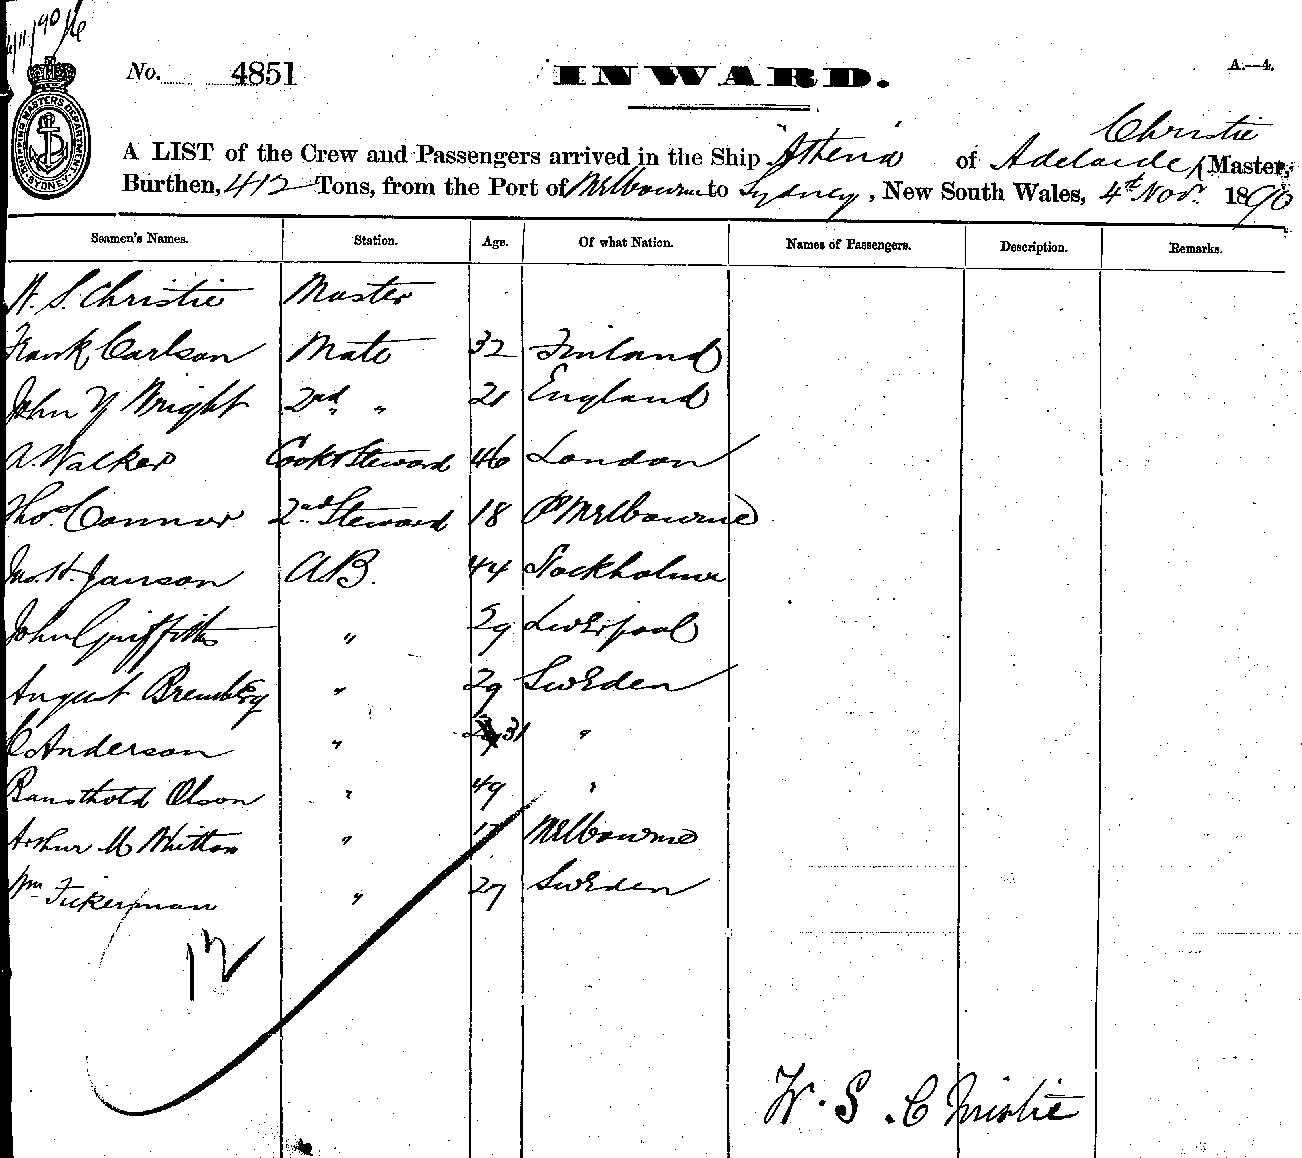 No. 4851 INWARD. A.—4.
SHIPPING MASTER'S DEPARTMENT SYDNEY
Christie
A LIST of the Crew and Passengers arrived in the Ship "Athena" of Adelaide, Master,
Burthen, 412 Tons, from the Port of Melbourne to Sydney, New South Wales, 4th Nov. 1890
Seamen's Names. Station. Age. Of what Nation. Names of Passengers. Description. Remarks.
W. S. Christie Master
Frank Carlson Mate 32 Finland
John Y Wright 2nd " 21 England
A. Walker Cook & Steward 46 London
Thos Connor 2nd Steward 18 Melbourne
Jno. H. Janson A.B. 44 Stockholm
John Griffiths " 29 Liverpool
August Bremberg " 29 Sweden
C Anderson " 31 "
Olson " 49 "
Arthur M Whitton " 17 Melbourne
Wm Tickerman " 27 Sweden
12
W. S. Christie